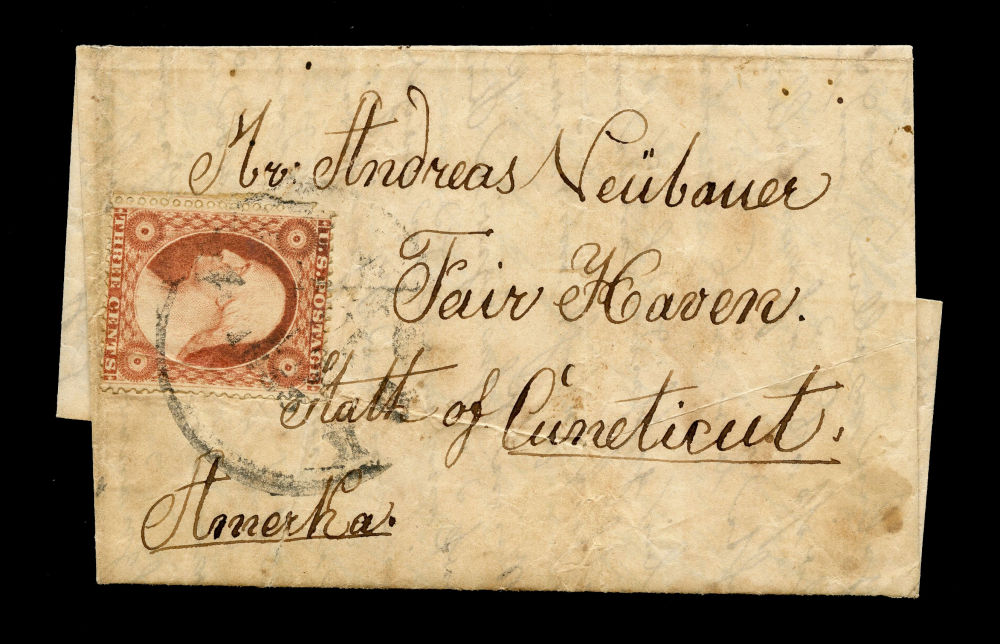 Mr. Andreas Neübauer
Fair Haven.
Statt of Cúneticut.
Amerka.
U.S. POSTAGE
THREE CENTS